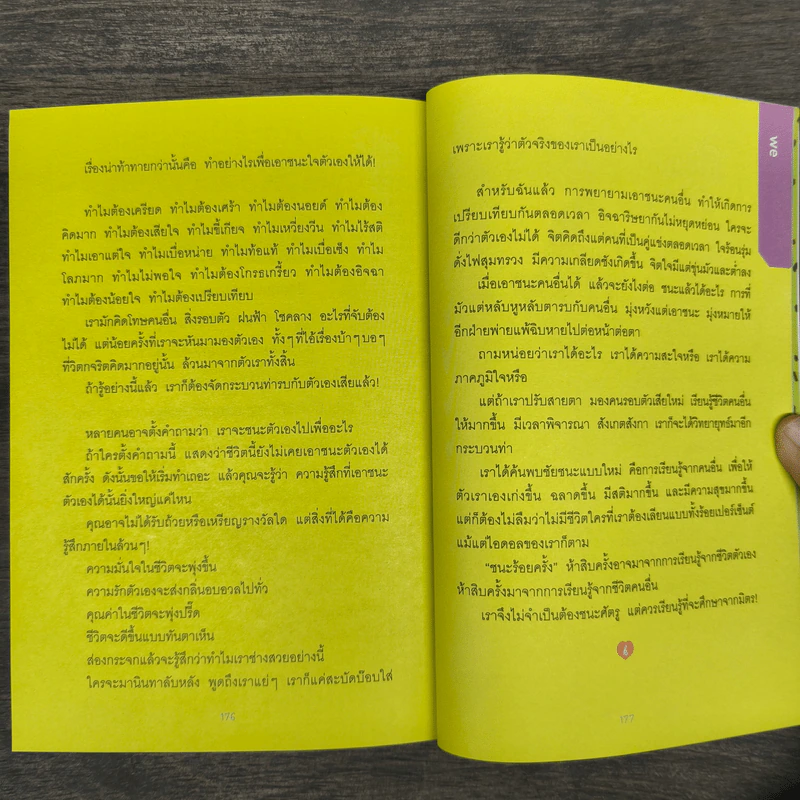 เรื่องน่าท้าทายกว่านั้นคือ ทำอย่างไรเพื่อเอาชนะใจตัวเองให้ได้!
ทำไมต้องเครียด ทำไมต้องเศร้า ทำไมต้องนอยด์ ทำไมต้อง
คิดมาก ทำไมต้องเสียใจ ทำไมขี้เกียจ ทำไมเหวี่ยงวีน ทำไมไร้สติ
ทำไมเอาแต่ใจ ทำไมเบื่อหน่าย ทำไมท้อแท้ ทำไมเบื่อเซ็ง ทำไม
โลภมาก ทำไมไม่พอใจ ทำไมต้องโกรธเกรี้ยว ทำไมต้องอิจฉา
ทำไมต้องน้อยใจ ทำไมต้องเปรียบเทียบ
เรามักคิดโทษคนอื่น สิ่งรอบตัว ฝนฟ้า โชคลาง อะไรที่จับต้อง
ไม่ได้ แต่น้อยครั้งที่เราจะหันมามองตัวเอง ทั้งๆ ที่ไอ้เรื่องบ้าๆ บอๆ
ที่วิตกจริตคิดมากอยู่นั้น ล้วนมาจากตัวเราทั้งสิ้น
ถ้ารู้อย่างนี้แล้ว เราก็ต้องจัดกระบวนท่ารบกับตัวเองเสียแล้ว!
หลายคนอาจตั้งคำถามว่า เราจะชนะตัวเองไปเพื่ออะไร
ถ้าใครตั้งคำถามนี้ แสดงว่าชีวิตนี้ยังไม่เคยเอาชนะตัวเองได้
สักครั้ง ดังนั้นขอให้เริ่มทำเถอะ แล้วคุณจะรู้ว่า ความรู้สึกที่เอาชนะ
ตัวเองได้นั้นยิ่งใหญ่แค่ไหน
คุณอาจไม่ได้รับถ้วยหรือเหรียญรางวัลใด แต่สิ่งที่ได้คือความ
รู้สึกภายในล้วนๆ!
ความมั่นใจในชีวิตจะพุ่งขึ้น
ความรักตัวเองจะส่งกลิ่นอบอวลไปทั่ว
คุณค่าในชีวิตจะพุ่งปรี๊ด
ชีวิตจะดีขึ้นแบบทันตาเห็น
ส่องกระจกแล้วจะรู้สึกว่าทำไมเราช่างสวยอย่างนี้
ใครจะมานินทาลับหลัง พูดถึงเราแย่ๆ เราก็แค่สะบัดบ๊อบใส่
176
เพราะเรารู้ว่าตัวจริงของเราเป็นอย่างไร
สำหรับฉันแล้ว การพยายามเอาชนะคนอื่น ทำให้เกิดการ
เปรียบเทียบกันตลอดเวลา อิจฉาริษยากันไม่หยุดหย่อน ใครจะ
ดีกว่าตัวเองไม่ได้ จิตคิดถึงแต่คนที่เป็นคู่แข่งตลอดเวลา ใจร้อนรุ่ม
ดั่งไฟสุมทรวง มีความเกลียดชังเกิดขึ้น จิตใจมีแต่ขุ่นมัวและต่ำลง
เมื่อเอาชนะคนอื่นได้ แล้วจะยังไงต่อ ชนะแล้วได้อะไร การที่
มัวแต่หลับหูหลับตารบกับคนอื่น มุ่งหวังแต่เอาชนะ มุ่งหมายให้
อีกฝ่ายพ่ายแพ้ฉิบหายไปต่อหน้าต่อตา
ถามหน่อยว่าเราได้อะไร เราได้ความสะใจหรือ เราได้ความ
ภาคภูมิใจหรือ
แต่ถ้าเราปรับสายตา มองคนรอบตัวเสียใหม่ เรียนรู้ชีวิตคนอื่น
ให้มากขึ้น มีเวลาพิจารณา สังเกตสังกา เราก็จะได้วิทยายุทธ์มาอีก
กระบวนท่า
เราได้ค้นพบชัยชนะแบบใหม่ คือการเรียนรู้จากคนอื่น เพื่อให้
ตัวเราเองเก่งขึ้น ฉลาดขึ้น มีสติมากขึ้น และมีความสุขมากขึ้น
แต่ก็ต้องไม่ลืมว่าไม่มีชีวิตใครที่เราต้องเลียนแบบทั้งร้อยเปอร์เซ็นต์
แม้แต่ไอดอลของเราก็ตาม
"ชนะร้อยครั้ง" ห้าสิบครั้งอาจมาจากการเรียนรู้จากชีวิตตัวเอง
ห้าสิบครั้งมาจากการเรียนรู้จากชีวิตคนอื่น
เราจึงไม่จำเป็นต้องชนะศัตรู แต่ควรเรียนรู้ที่จะศึกษาจากมิตร!
177
we